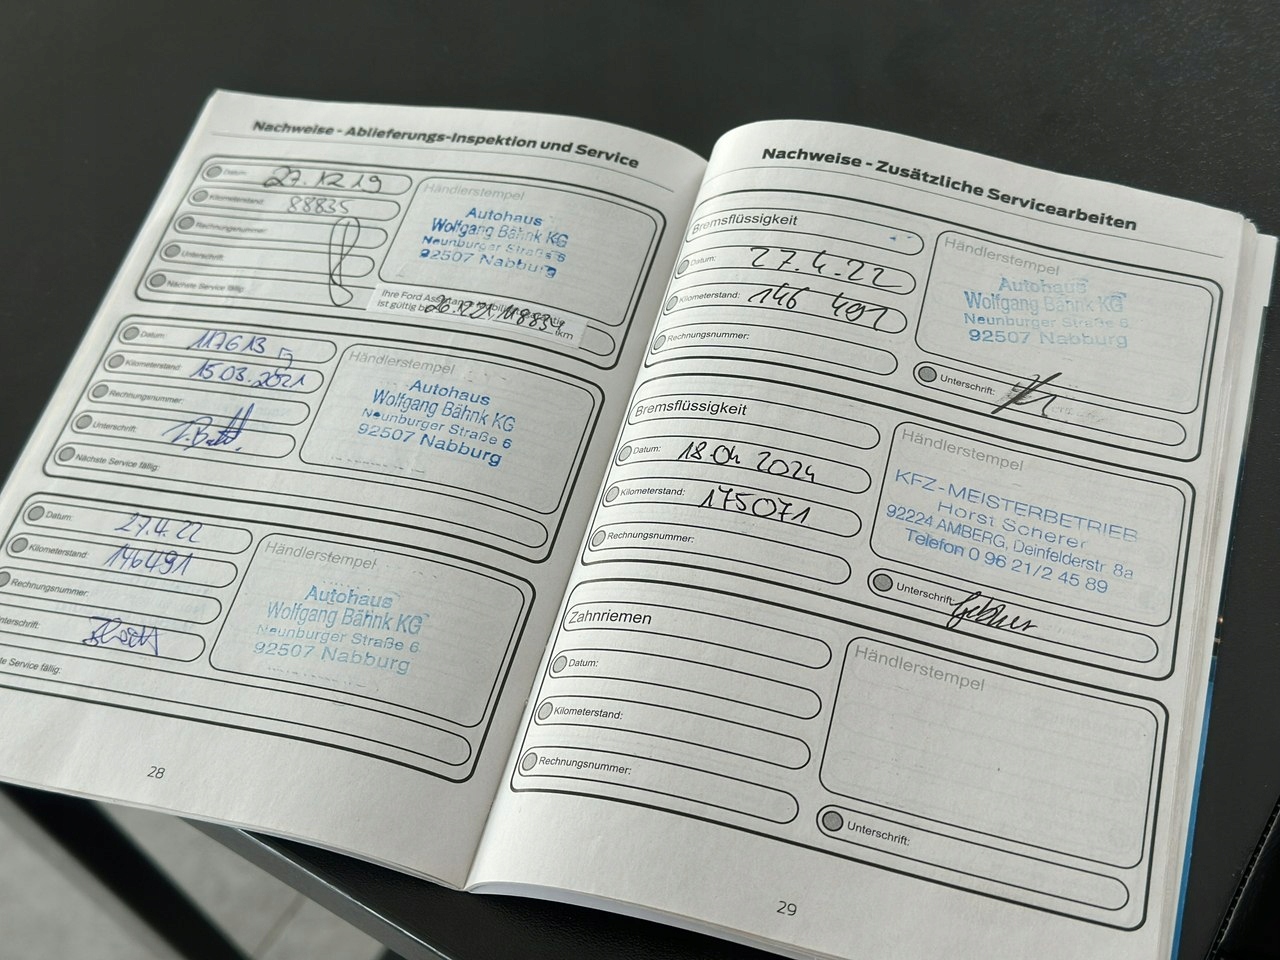 Nachweise - Ablieferungs-Inspektion und Service
Datum: 27.12.19
Kilometerstand: 88835
Rechnungsnummer:
Unterschrift:
Nächste Service fällig:
Händlerstempel
Autohaus
Wolfgang Bähnk KG
Neunburger Straße 6
92507 Nabburg
Ihre Ford
ist gültig
km
Datum: 117613
Kilometerstand: 15.03.2021
Rechnungsnummer:
Unterschrift:
Nächste Service fällig:
Händlerstempel
Autohaus
Wolfgang Bähnk KG
Neunburger Straße 6
92507 Nabburg
Datum: 27.4.22
Kilometerstand: 146491
Rechnungsnummer:
nterschrift:
te Service fällig:
Händlerstempel
Autohaus
Wolfgang Bähnk KG
Neunburger Straße 6
92507 Nabburg
28
Nachweise - Zusätzliche Servicearbeiten
Bremsflüssigkeit
Datum: 27.4.22
Kilometerstand: 146 491
Rechnungsnummer:
Händlerstempel
Autohaus
Wolfgang Bähnk KG
Neunburger Straße 6
92507 Nabburg
Unterschrift:
Bremsflüssigkeit
Datum: 18.04 2024
Kilometerstand: 175071
Rechnungsnummer:
Händlerstempel
KFZ-MEISTERBETRIEB
Horst Scherer
92224 AMBERG, Deinfelderstr. 8a
Telefon 0 96 21/2 45 89
Unterschrift:
Zahnriemen
Datum:
Kilometerstand:
Rechnungsnummer:
Händlerstempel
Unterschrift:
29